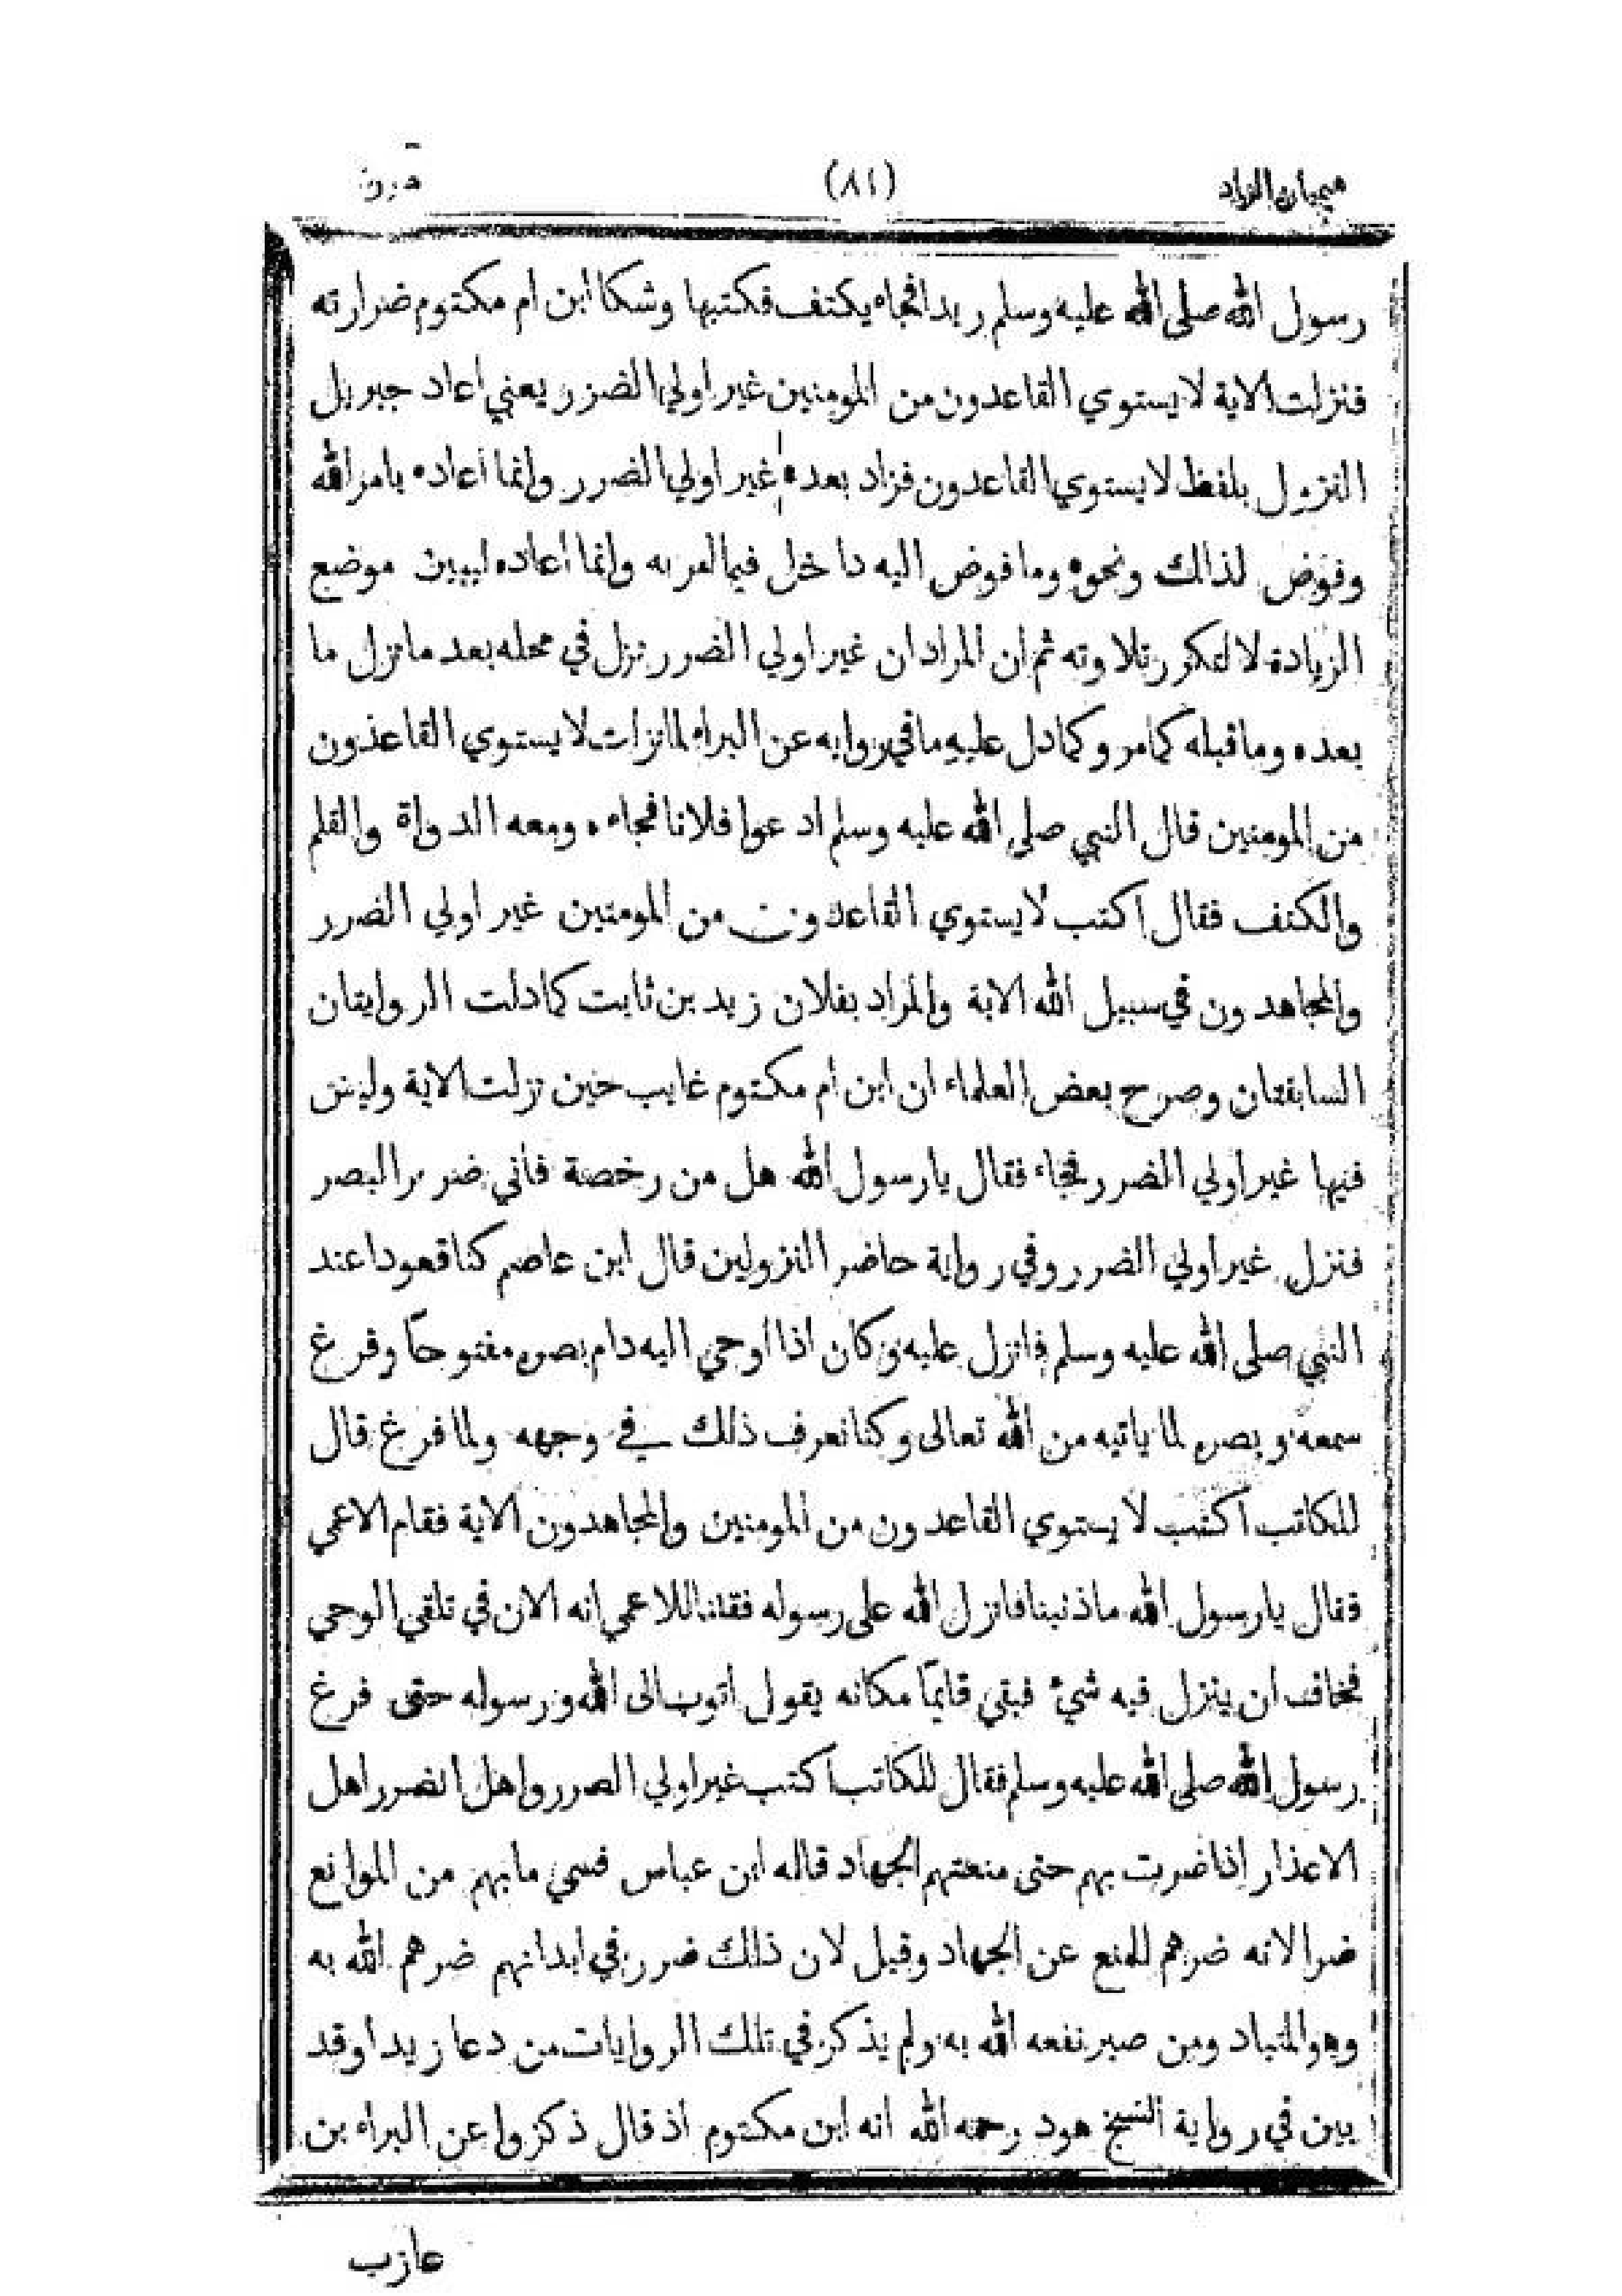 هيميان الزاد (٨١)
رسول الله صلى الله عليه وسلم زيدا فجاء بكتف فكتبها وشكا ابن ام مكتوم ضرارته
فنزلت الاية لا يستوي القاعدون من المومنين غير اولي الضرر يعني اعاد جبريل
النزول بلفظ لا يستوي القاعدون فزاد بعده غير اولي الضرر وانما أعاده بامر الله
وفوض لذالك ونحوه وما فوض اليه داخل فيما امر به وانما أعاده ليبين موضع
الزيادة لا لتكرر تلاوته ثم ان المراد ان غير اولي الضرر نزل في محله بعد ما نزل ما
بعده وما قبله كما مر وكما دل عليه ما في رواية عن البراء لما نزلت لا يستوي القاعدون
من المومنين قال النبي صلى الله عليه وسلم ادعوا فلانا فجاءه ومعه الدواة والقلم
والكتف فقال اكتب لا يستوي القاعدون من المومنين غير اولي الضرر
والمجاهدون في سبيل الله الاية والمراد بفلان زيد بن ثابت كما دلت الروايتان
السابقتان وصرح بعض العلماء ان ابن أم مكتوم غايب حين نزلت الاية وليس
فيها غير اولي الضرر فجاء فقال يا رسول الله هل من رخصة فأني ضرير البصر
فنزل غير اولي الضرر وفي رواية حاضر النزولين قال ابن عاصم كنا قعودا عند
النبي صلى الله عليه وسلم فانزل عليه وكان اذا اوحي اليه دام بصره مفتوحا وفرغ
سمعه وبصره لما ياتيه من الله تعالى وكنا نعرف ذلك في وجهه ولما فرغ قال
للكاتب اكتب لا يستوي القاعدون من المومنين والمجاهدون الاية فقام الاعمي
فقال يا رسول الله ما ذنبنا فانزل الله على رسوله فقلنا للاعمي إنه الان في تلقي الوحي
فخاف ان ينزل فيه شيء فبقي قايما مكانه يقول اتوب الى الله ورسوله حتى فرغ
رسول الله صلى الله عليه وسلم فقال للكاتب اكتب غير اولي الضرر واهل الضرر اهل
الاعذار اذا ضرت بهم حتى منعتهم الجهاد قاله ابن عباس فسمي ما بهم من الموانع
ضرا لانه ضرهم للمنع عن الجهاد وقيل لان ذلك ضرر في ابدانهم ضرهم الله به
وهو المتباد ومن صبر نفعه الله به ولم يذكر في تلك الروايات من دعا زيدا وقد
بين في رواية الشيخ هود رحمه الله انه ابن مكتوم اذ قال ذكروا عن البراء بن
عازب